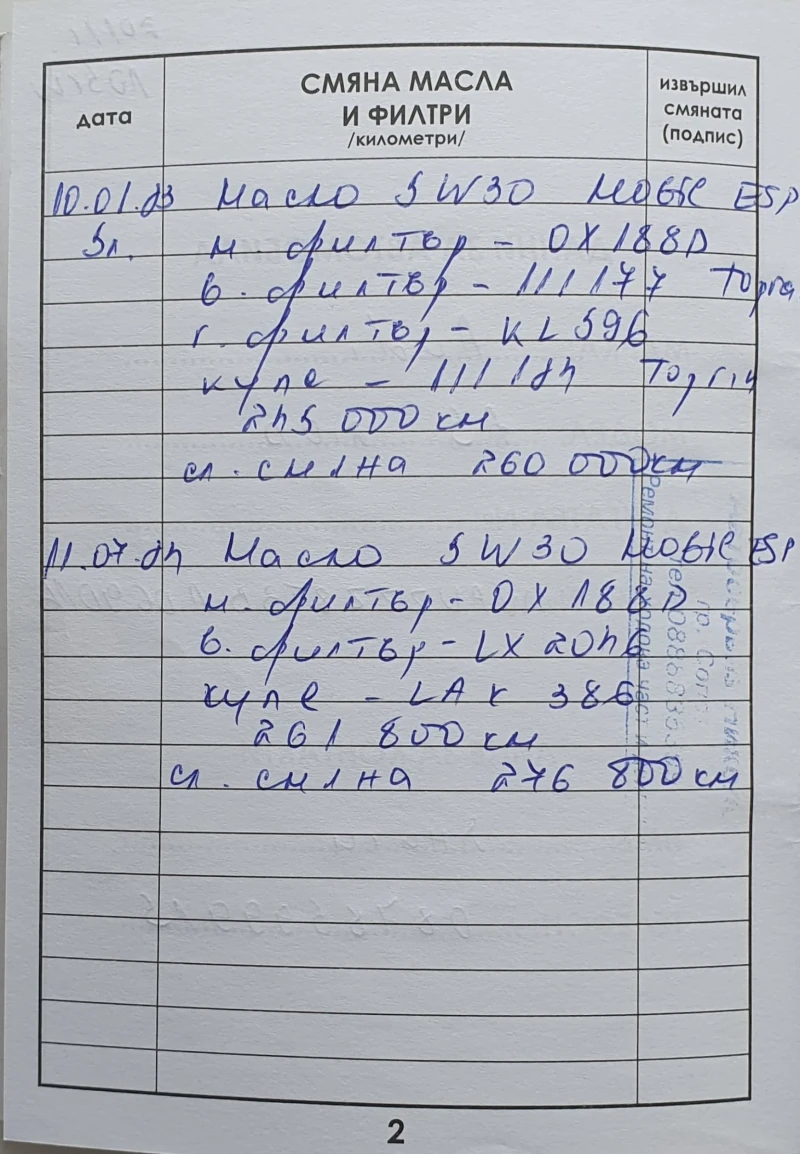 дата
СМЯНА МАСЛА
И ФИЛТРИ
/километри/
извършил
смяната
(подпис)
10.01.23 Масло 5W30 Мобіl ESP
5л. м. филтър - OX188D
в. филтър - 111177 Торга
г. филтър - KL596
купе - 111124 Торгіч
245 000 км
сл. смяна 260 000 км
11.07.24 Масло 5W30 Мобіl ESP
м. филтър - OX 188D
в. филтър - LX 2046
купе - LAK 386
261 800 км
сл. смяна 276 800 км
2